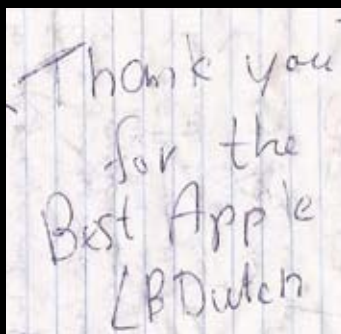 Thank you
for the
Best Apple
LB Dutch